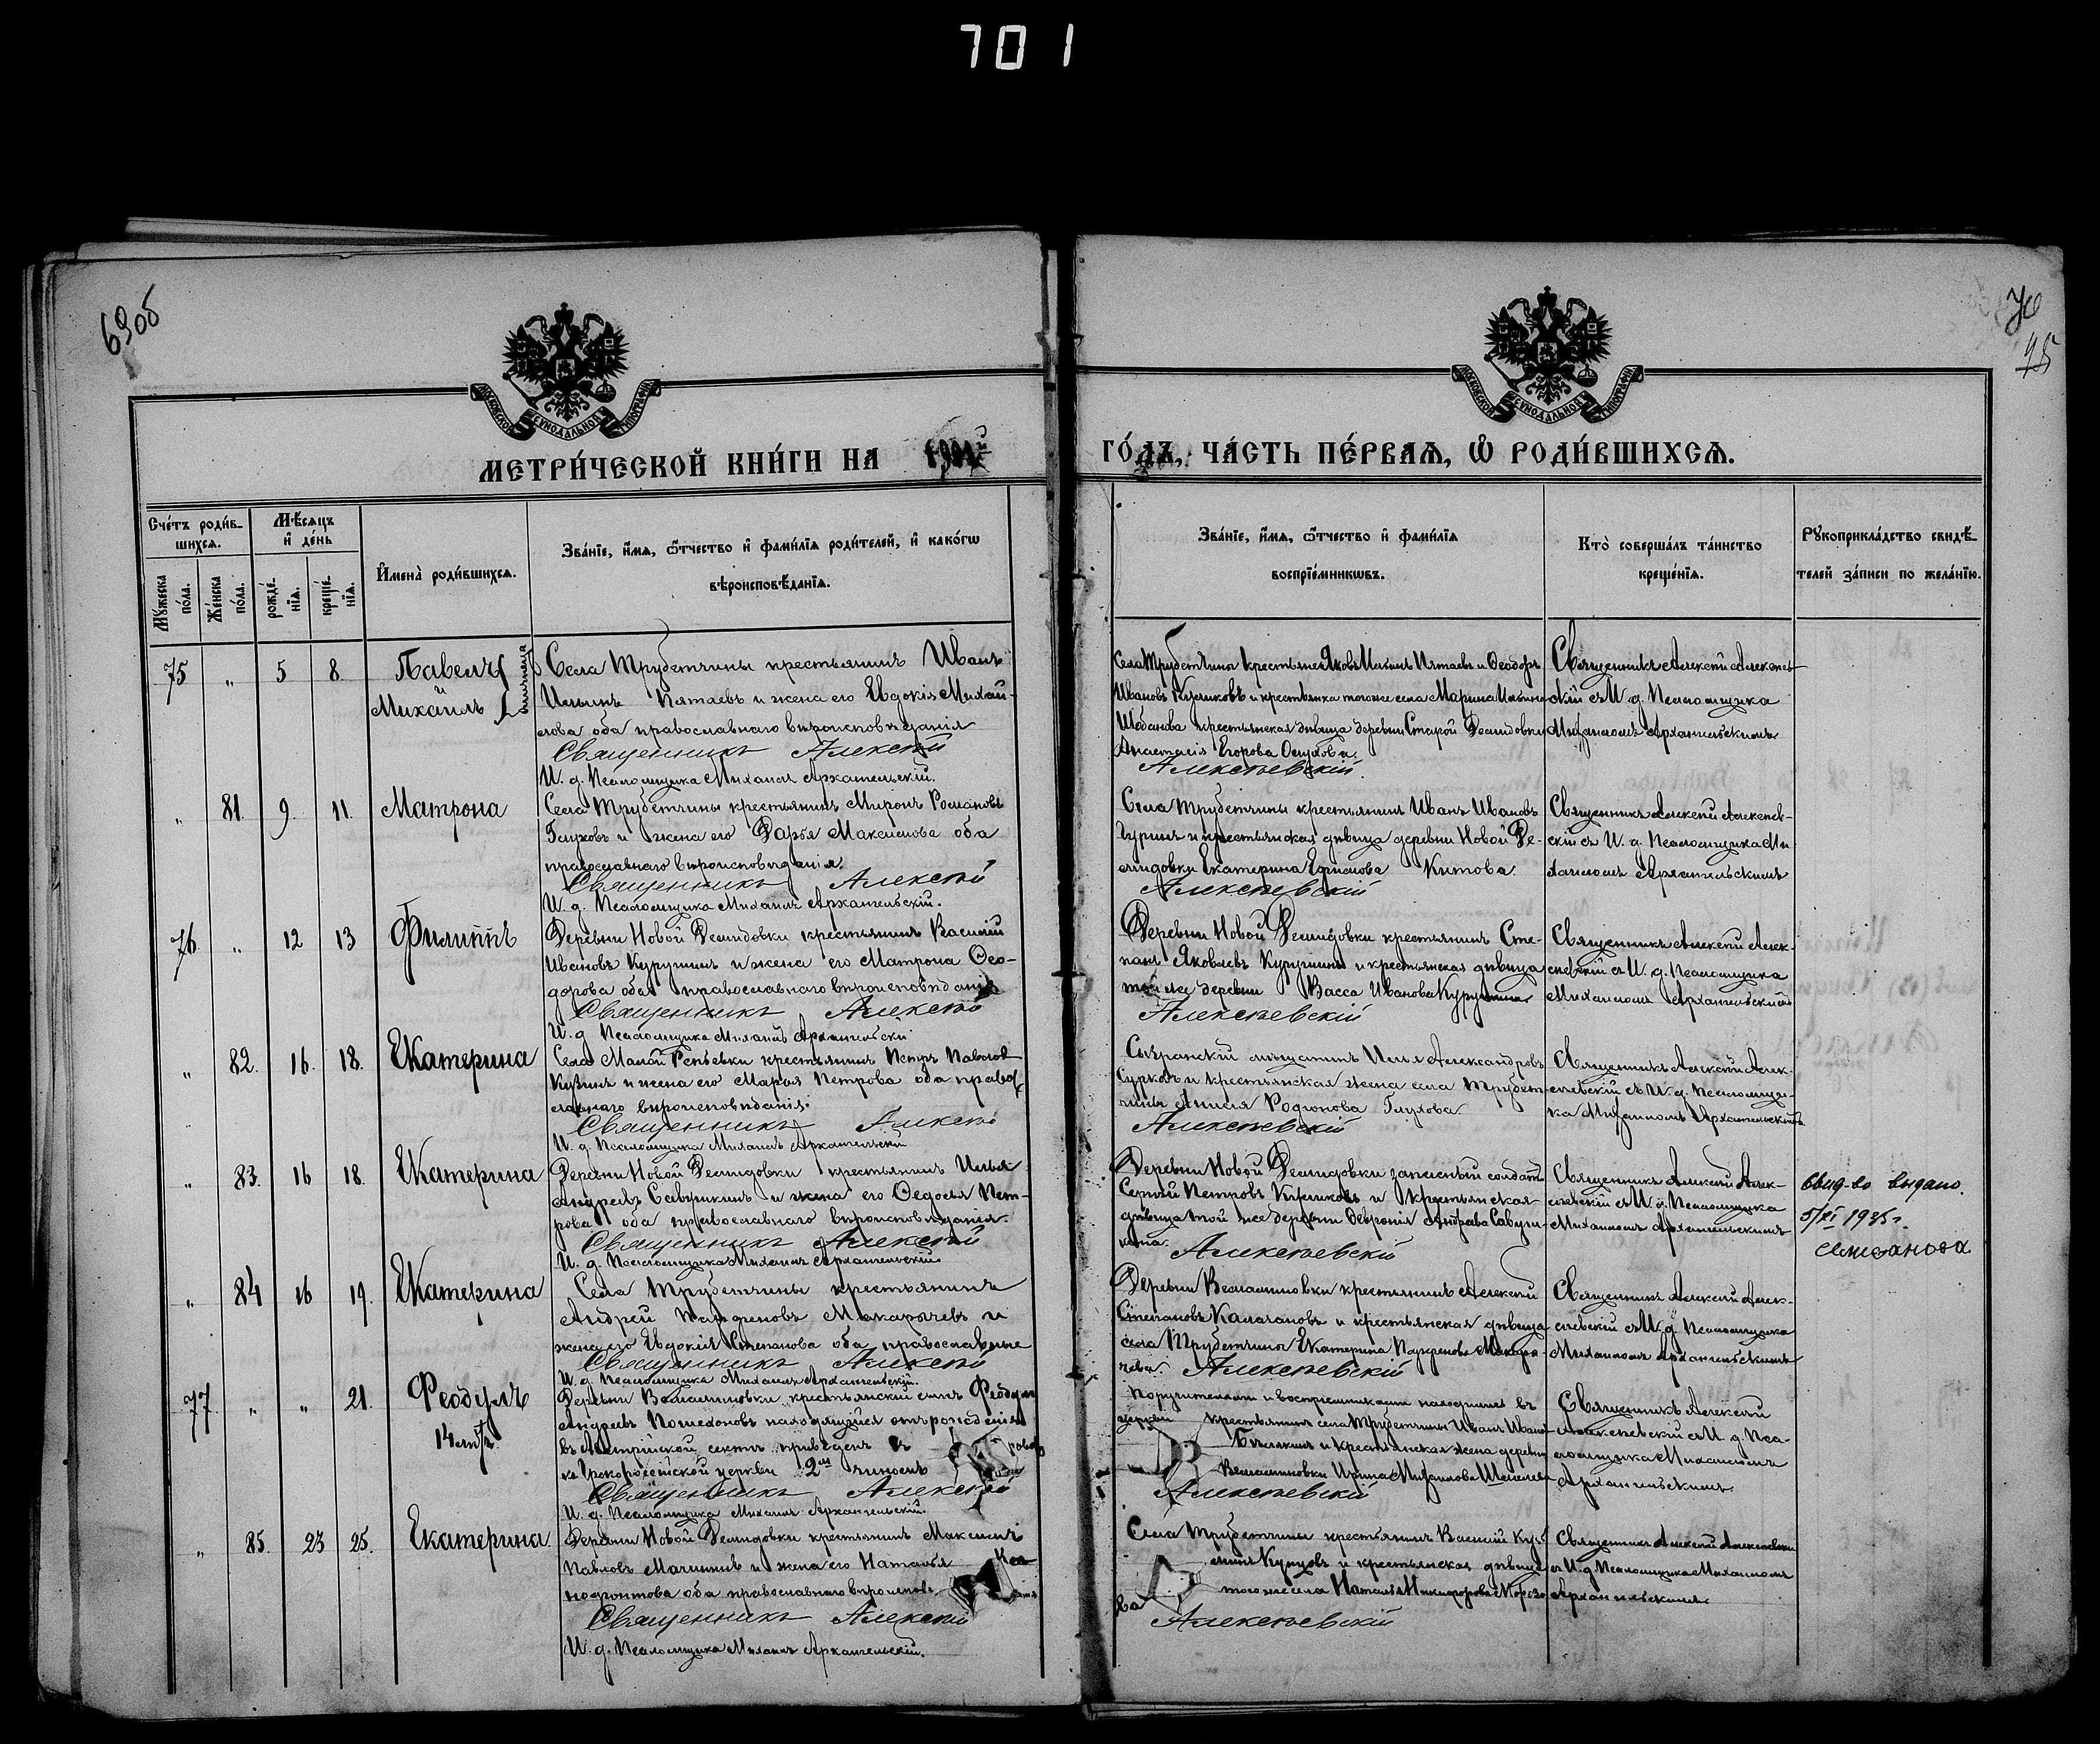 701
69об
70
МОСКОВСКОЙ СѴНОДАЛЬНОЙ ТИПОГРАФІИ
МОСКОВСКОЙ СѴНОДАЛЬНОЙ ТИПОГРАФІИ
МЕТРИ́ЧЕСКОЙ КНИ́ГИ НА
ГО́ДЪ, ЧА́СТЬ ПЕ́РВАѦ, Ѡ҆ РОДИ́ВШИХСѦ.
Сче́тъ роди́в-
шихсѧ.
Мꙋжеска по́ла.
Же́нска по́ла.
Мѣ́сѧцъ
и҆ де́нь
рожде́-
нїѧ.
креще́-
нїѧ.
И҆мена̀ роди́вшихсѧ.
Зва́нїе, и҆́мѧ, ѻ҆́тчество и҆ фами́лїѧ роди́телей, и҆ како́гѡ
вѣроисповѣ́данїѧ.
Зва́нїе, и҆́мѧ, ѻ҆́тчество и҆ фами́лїѧ
воспрїе́мникѡвъ.
Кто̀ соверша́лъ та́инство
креще́нїѧ.
Рꙋкоприкла́дство свидѣ́-
телей за́писи по жела́нїю.
75 " 5 8 Павелъ
Михаилъ
Села Трубетчины крестьянинъ Иванъ
Ильинъ Пятаевъ и жена его Евдокія Михай-
лова оба православнаго вѣроисповѣданія
Священникъ Алексѣй
И. д. Псаломщика Михаилъ Архангельскій.
Села Трубетчины крестьяне Яковъ Ильинъ Пятаевъ и Ѳеодоръ
Ивановъ Куликовъ и крестьянка тогоже села Марина Ильина
крестьянская дѣвица деревни Старой Демидовки
Анастасія Егорова
Алексѣевскій.
Священникъ Алексѣй Алексѣев-
скій съ И. д. Псаломщика
Михаиломъ Архангельскимъ
" 81. 9. 11. Матрона
Села Трубетчины крестьянинъ Миронъ Романовъ
Глуховъ и жена его Дарья Максимова оба
православнаго вѣроисповѣданія.
Священникъ Алексѣй
И. д. Псаломщика Михаилъ Архангельскій.
Села Трубетчины крестьянинъ Иванъ Ивановъ
Гуринъ и крестьянская дѣвица деревни Новой Де-
мидовки Екатерина Ефимова Китова.
Алексѣевскій
Священникъ Алексѣй Алексѣев-
скій съ И. д. Псаломщика Ми-
хаиломъ Архангельскимъ
76 " 12 13 Филиппъ
Деревни Новой Демидовки крестьянинъ Василій
Ивановъ Курушинъ и жена его Матрона Ѳео-
дорова оба православнаго вѣроисповѣданія
Священникъ Алексѣй
И. д Псаломщика Михаилъ Архангельскій
Деревни Новой Демидовки крестьянинъ Сте-
панъ Яковлевъ Курушинъ и крестьянская дѣвица
той же деревни Васса Иванова Курушина
Алексѣевскій
Священникъ Алексѣй Алек-
сѣевскій съ И. д. Псаломщика
Михаиломъ Архангельскимъ
" 82. 16. 18. Екатерина
Села Малой Репьевки крестьянинъ Петръ Павловъ
Кузинъ и жена его Марья Петрова оба право-
славнаго вѣроисповѣданія.
Священникъ Алексѣй
И. д. Псаломщика Михаилъ Архангельскій
Сызранскій мѣщанинъ Илья Александровъ
Сурковъ и крестьянская жена села Трубет-
чины Анисія Родіонова Глухова.
Алексѣевскій
Священникъ Алексѣй Алек-
сѣевскій съ И. д. Псаломщи-
ка Михаиломъ Архангельскимъ
" 83. 16 18. Екатерина
Деревни Новой Демидовки крестьянинъ Илья
Андреевъ Савушкинъ и жена его Ѳедосья Пет-
рова оба православнаго вѣроисповѣданія.
Священникъ Алексѣй
И. д. Псаломщика Михаилъ Архангельскій
Деревни Новой Демидовки запасный солдатъ
Сергѣй Петровъ и крестьянская
дѣвица той же деревни Февронія Андреева Савуш-
кина. Алексѣевскій
Священникъ Алексѣй Алек-
сѣевскій съ И. д. Псаломщика
Михаиломъ Архангельскимъ
Свид-во выдано.
5/XI 1935 г.
" 84 16 19. Екатерина
Села Трубетчины крестьянинъ
Андрей Панфиловъ Макарычевъ и
жена его Евдокія Степанова оба православные
Священникъ Алексѣй
И. д. Псаломщика Михаилъ Архангельскій.
Деревни крестьянинъ Алексѣй
Степановъ Калачановъ и крестьянская дѣвица
села Трубетчины Екатерина Панфилова Макары-
чева. Алексѣевскій
Священникъ Алексѣй Алек-
сѣевскій съ И. д. Псаломщика
Михаиломъ Архангельскимъ
77 " " 21. Феодулъ
14 лѣтъ.
Деревни крестьянскій сынъ Феодулъ
Андреевъ Пошехоновъ находящійся отъ рожденія
въ Австрійской сектѣ приведенъ къ
ко Грекороссійской церкви 2мъ чиномъ
Священникъ Алексѣй
И. д. Псаломщика Михаилъ Архангельскій.
Поручителями и воспріемниками находились въ
церкви крестьянинъ села Трубетчины Иванъ Ивано-
и крестьянская жена деревни
Ирина Михаилова
Алексѣевскій
Священникъ Алексѣй
Алексѣевскій съ И. д. Пса-
ломщика Михаиломъ
Архангельскимъ
" 85. 23 25. Екатерина
Деревни Новой Демидовки крестьянинъ Максимъ
Павловъ и жена его Наталья
оба православнаго
Священникъ Алексѣй
И. д. Псаломщика Михаилъ Архангельскій.
Села Трубетчины крестьянинъ Василій Кузь-
минъ Купцовъ и крестьянская дѣвица
того же села Наталья Никифорова Морозо-
ва
Алексѣевскій
Священникъ Алексѣй Алексѣевскій
съ И. д. Псаломщика Михаиломъ
Архангельскимъ